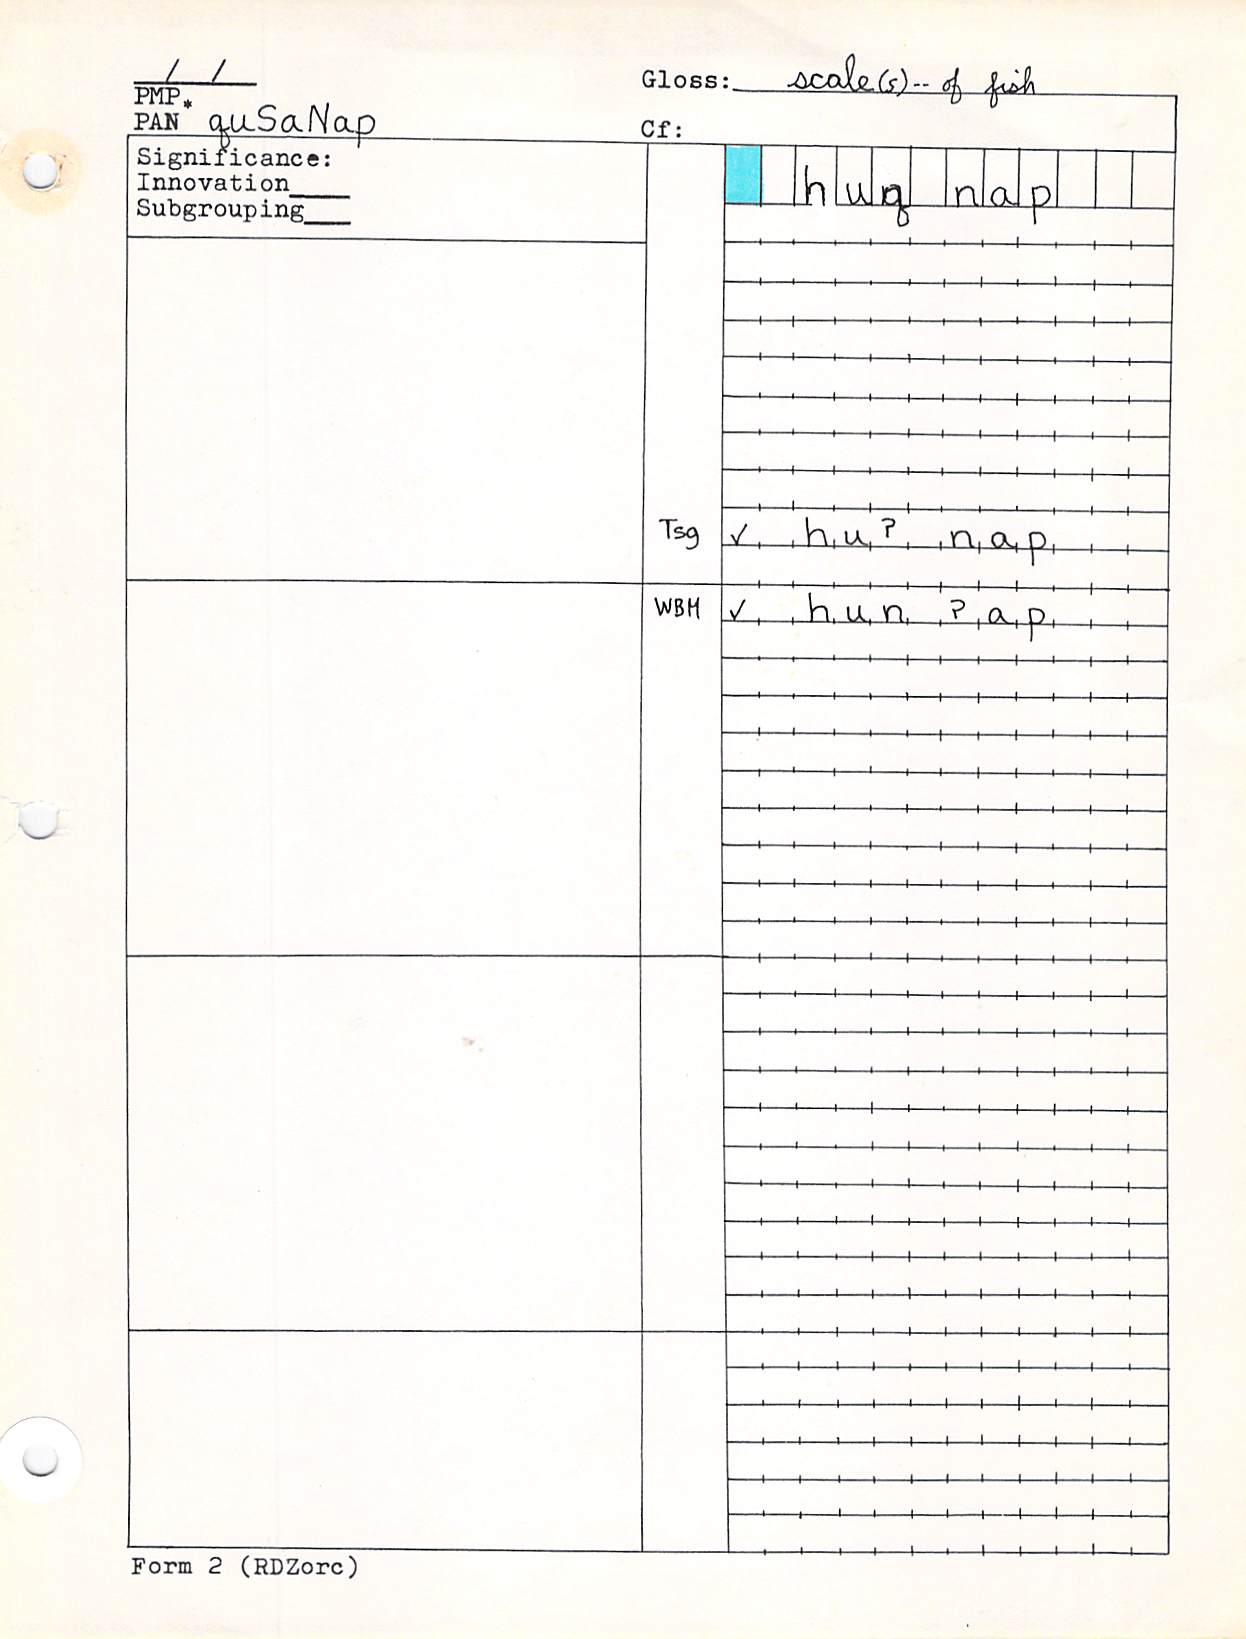 / /
PMP
PAN * quSaNap
Gloss: scale(s)-- of fish
Cf:
Significance:
Innovation
Subgrouping
huq nap
Tsg ✓ hu? nap
WBM ✓ hun ?ap
Form 2 (RDZorc)